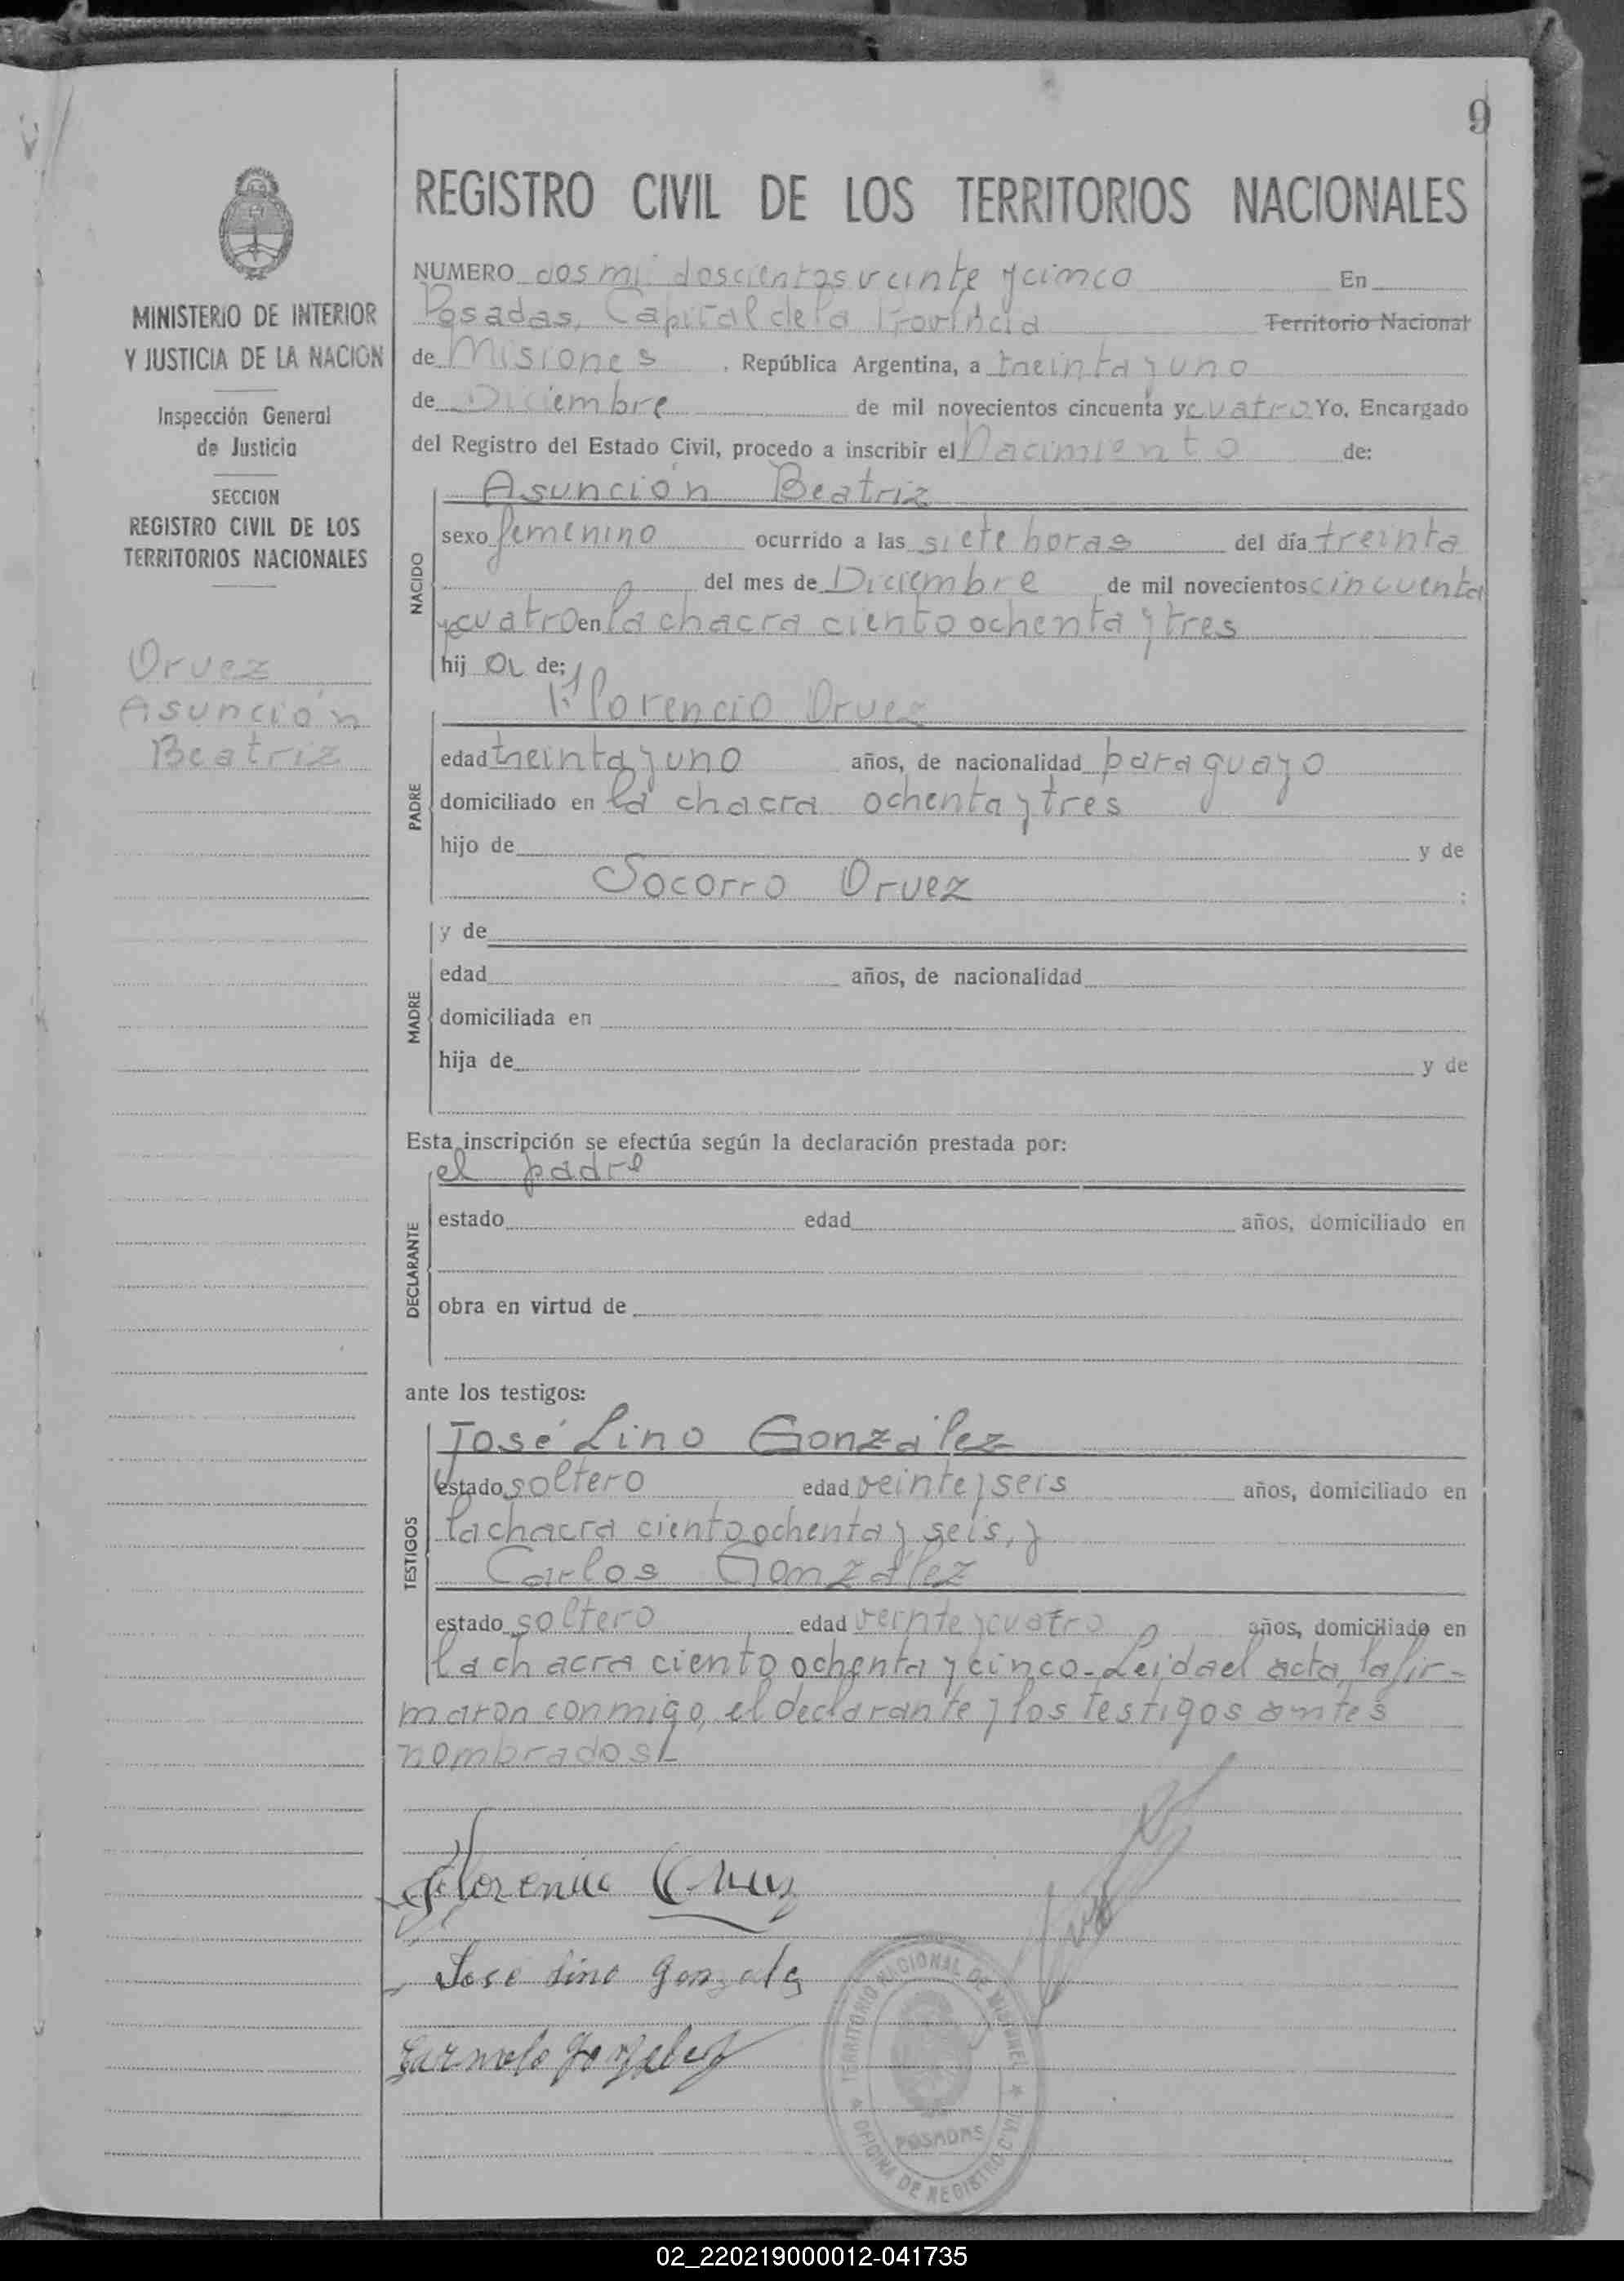 9
REGISTRO CIVIL DE LOS TERRITORIOS NACIONALES
MINISTERIO DE INTERIOR
Y JUSTICIA DE LA NACION
Inspección General
de Justicia
SECCION
REGISTRO CIVIL DE LOS
TERRITORIOS NACIONALES
Oruez
Asunción
Beatriz
NUMERO dos mil doscientos veinte y cinco En
Posadas, Capital de la Provincia Territorio Nacional
de Misiones, República Argentina, a treinta y uno
de Diciembre de mil novecientos cincuenta y cuatro Yo, Encargado
del Registro del Estado Civil, procedo a inscribir el Nacimiento de:
Asunción Beatriz
NACIDO
sexo femenino ocurrido a las siete horas del día treinta
del mes de Diciembre de mil novecientos cincuenta
y cuatro en la chacra ciento ochenta y tres
hij a de;
Florencio Oruez
PADRE
edad treinta y uno años, de nacionalidad paraguayo
domiciliado en la chacra ochenta y tres
hijo de y de
Socorro Oruez ;
y de
MADRE
edad años, de nacionalidad
domiciliada en
hija de y de
Esta inscripción se efectúa según la declaración prestada por:
el padre
DECLARANTE
estado edad años, domiciliado en
obra en virtud de
ante los testigos:
José Lino González
TESTIGOS
estado soltero edad veinte y seis años, domiciliado en
la chacra ciento ochenta y seis, y
Carlos González
estado soltero edad veinte y cuatro años, domiciliado en
la chacra ciento ochenta y cinco-Leída el acta, la fir=
maron conmigo, el declarante y los testigos antes
nombrados.-
Florencio Oruez
Jose Lino Gonzalez
TERRITORIO NACIONAL DE MISIONES
POSADAS
OFICINA DE REGISTRO CIVIL
02_220219000012-041735